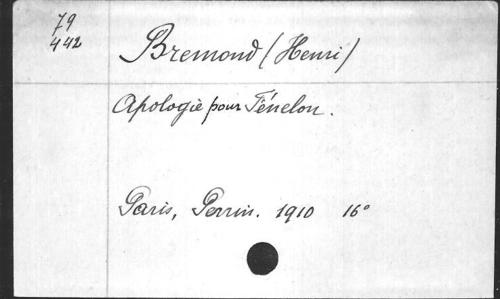 79
442
Bremond (Henri)
Apologie pour Fénelon.
Paris, Perrin. 1910 16°